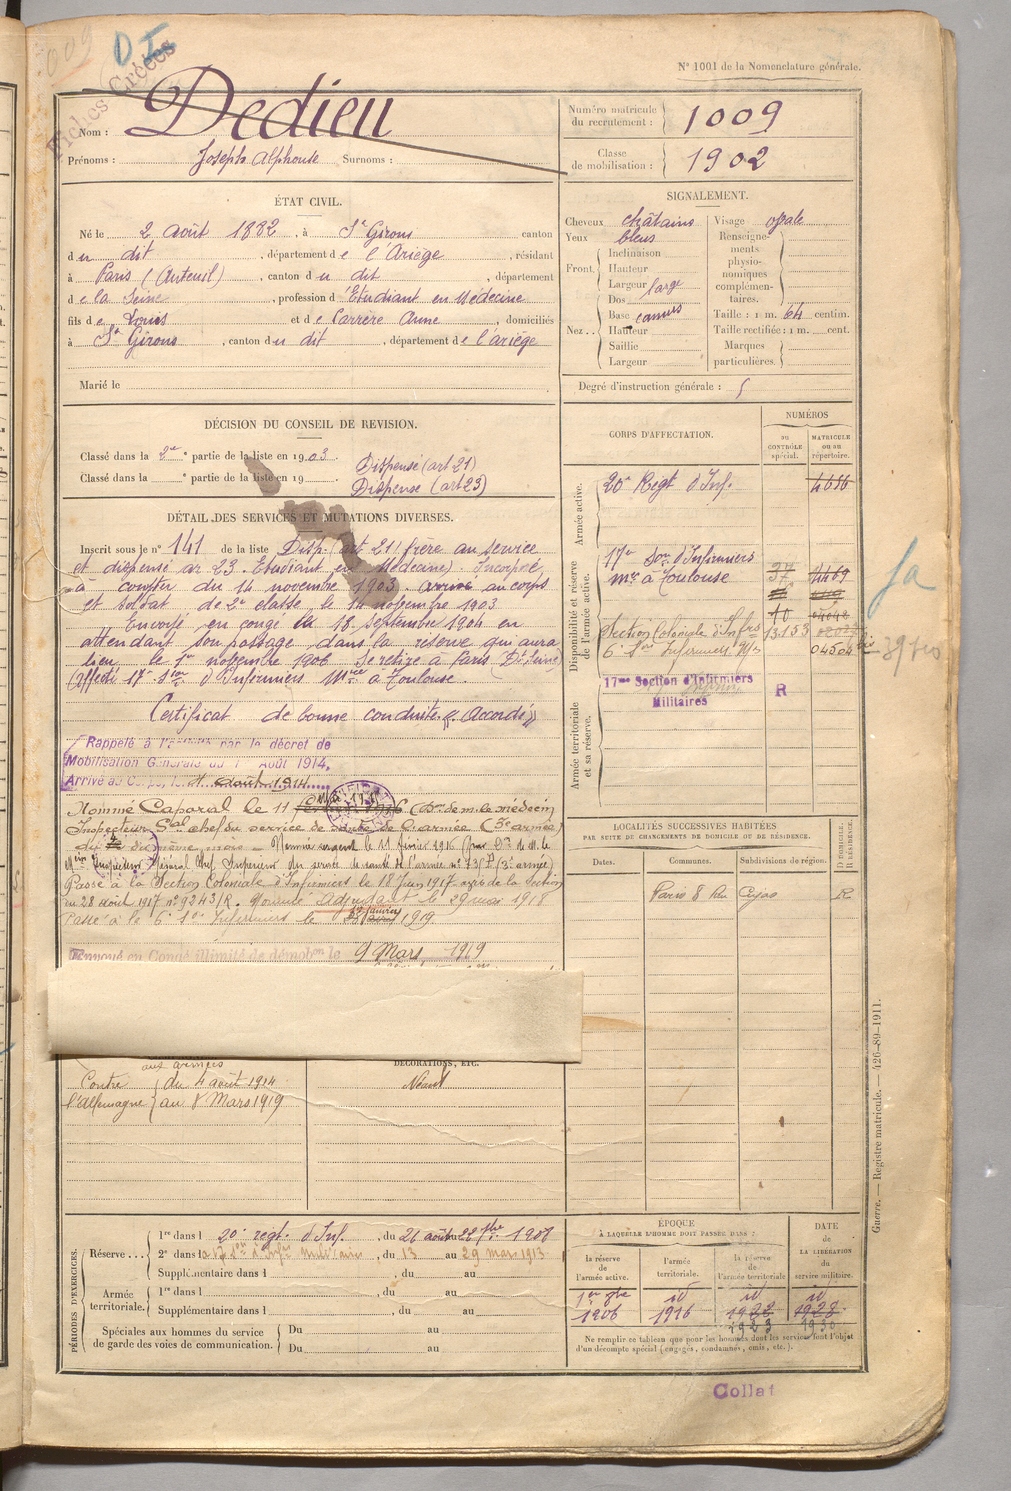 009 D I
Fiches Créées
N° 1001 de la Nomenclature générale.
Nom : Dedieu
Prénoms : Joseph Alphonse Surnoms :
Numéro matricule du recrutement : 1009
Classe de mobilisation : 1902
ÉTAT CIVIL.
Né le 2 août 1882, à St Girons canton
du dit, département de l'Ariège, résidant
à Paris (Auteuil), canton du dit, département
de la Seine, profession d'Etudiant en Médecine
fils de Louis et de Carrère Anne, domiciliés
à St Girons, canton du dit, département de l'ariège
Marié le
SIGNALEMENT.
Cheveux châtains
Yeux bleus
Front. Inclinaison
Hauteur
Largeur large
Nez.. Dos
Base camus
Hauteur
Saillie
Largeur
Visage ovale
Renseignements physionomiques complémentaires.
Taille : 1 m. 64 centim.
Taille rectifiée : 1 m. cent.
Marques particulières.
Degré d'instruction générale : 5
DÉCISION DU CONSEIL DE REVISION.
Classé dans la 2e partie de la liste en 1903. Dispensé (art 21)
Classé dans la e partie de la liste en 19 Dispense (art 23)
DÉTAIL DES SERVICES ET MUTATIONS DIVERSES.
Inscrit sous le n° 141 de la liste Disp. (art 21) frère au service
et dispensé ar 23. Etudiant en Médecine). Incorporé
à compter du 14 novembre 1903. arrivé au corps
et soldat de 2e classe le 14 novembre 1903
Envoyé en congé le 18 septembre 1904 en
attendant son passage dans la réserve qui aura
lieu le 1er novembre 1906 Se retire à Paris Dt Seine
Affecté 17e Son d'Infirmiers Mres à Toulouse.
Certificat de bonne conduite « Accordé »
Rappelé à l'activité par le décret de
Mobilisation Générale du 1er Août 1914.
Arrivé au Corps, le 4 août 1914
Nommé Caporal le 11 1916 (Don de m. le médecin
Inspecteur Gal chef du service de santé de l'armée (3e armée)
du dit même mois - Nommé sergent le 11 février 1916 (par Don de M. le
Min Inspecteur Général Chef Supérieur du service de santé de l'armée n° 73/P (3e armée)
Passé à la Section Coloniale d'Infirmiers le 18 Juin 1917 avis de la Section
du 28 août 1917 n° 9243/R. Nommé Adjudant le 29 mai 1918
Passé à la 6e Son Infirmiers le janvier 1919
Envoyé en Congé illimité de démobon le 9 Mars 1919
aux armées
Contre l'Allemagne du 4 août 1914
au 8 Mars 1919
DÉCORATIONS, ETC.
Néant
CORPS D'AFFECTATION.
NUMÉROS
au CONTRÔLE spécial.
MATRICULE ou au répertoire.
Armée active.
20e Regt d'Inf. 4656
Disponibilité et réserve de l'armée active.
17e Son d'Infirmiers
Mres à Toulouse 37 4469
10
Section Coloniale d'Infres 13.153
6e Son Infirmiers Mres 04504
39 710
fa
Armée territoriale et sa réserve.
17me Section d'Infirmiers
Militaires R
LOCALITÉS SUCCESSIVES HABITÉES
PAR SUITE DE CHANGEMENTS DE DOMICILE OU DE RÉSIDENCE.
Dates. Communes. Subdivisions de région. D DOMICILE. R RÉSIDENCE.
Paris 8 Rue Cujas R
Guerre. — Registre matricule. — 426-89-1911.
PÉRIODES D'EXERCICES.
Réserve... 1re dans l 20e regt. d'Inf., du 26 août au 22 7bre 1908
2e dans l a 17e Son, du 13 au 29 mars 1913
Supplémentaire dans l, du au
Armée territoriale. 1re dans l, du au
Supplémentaire dans l, du au
Spéciales aux hommes du service de garde des voies de communication. Du au
Du au
ÉPOQUE
À LAQUELLE L'HOMME DOIT PASSER DANS :
la réserve de l'armée active. l'armée territoriale. la réserve de l'armée territoriale
DATE de LA LIBÉRATION du service militaire.
1er 9bre 1906
id 1916
id 1922 1923
id 1928 1930
Ne remplir ce tableau que pour les hommes dont les services font l'objet
d'un décompte spécial (engagés, condamnés, omis, etc.).
Collat